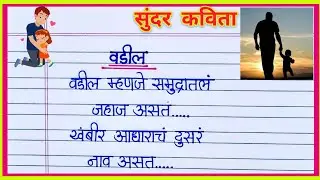 सुंदर कविता
वडील
वडील म्हणजे समुद्रातलं
जहाज असतं.....
खंबीर आधाराचं दुसरं
नाव असत.....